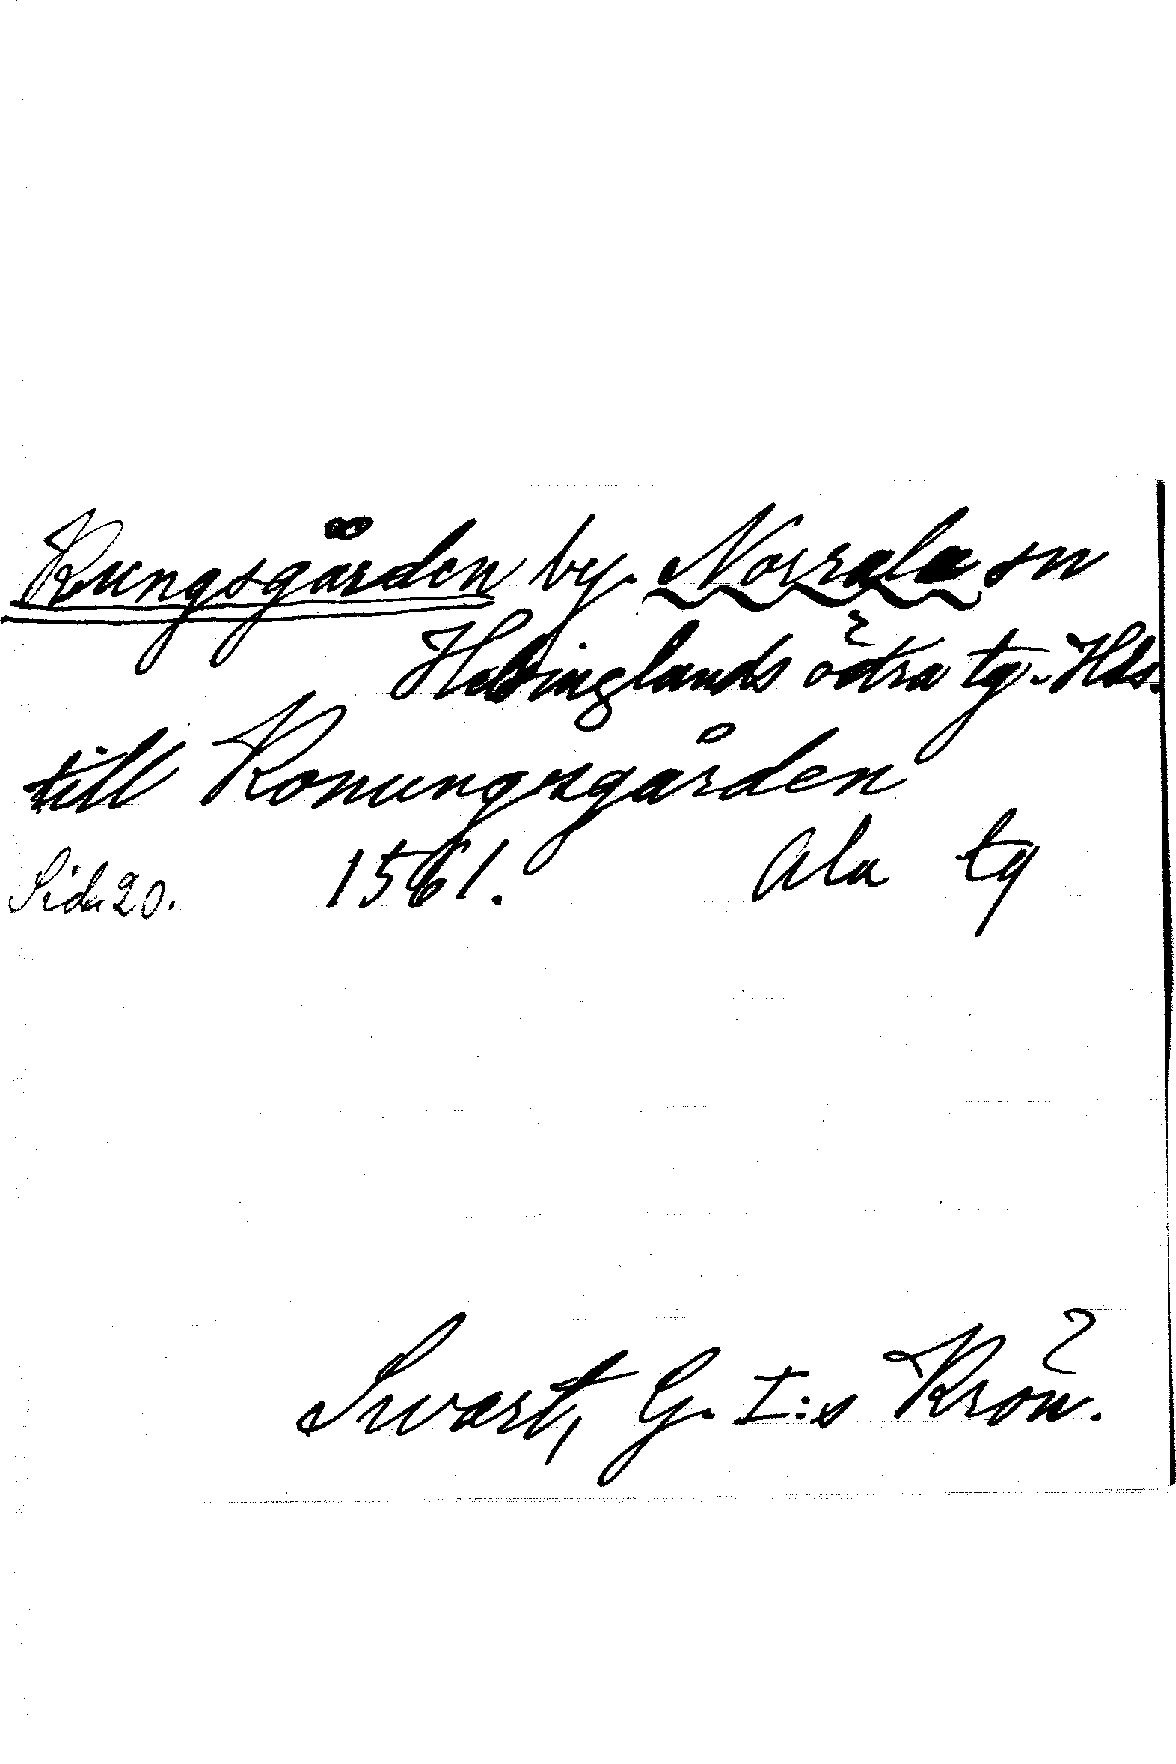 Kungsgården by. Norrala sn
Hälsinglands östra tg. Häls.
till Konungsgården
Sid. 20. 1561. Ala tg
Swart, G. I:s Krön.